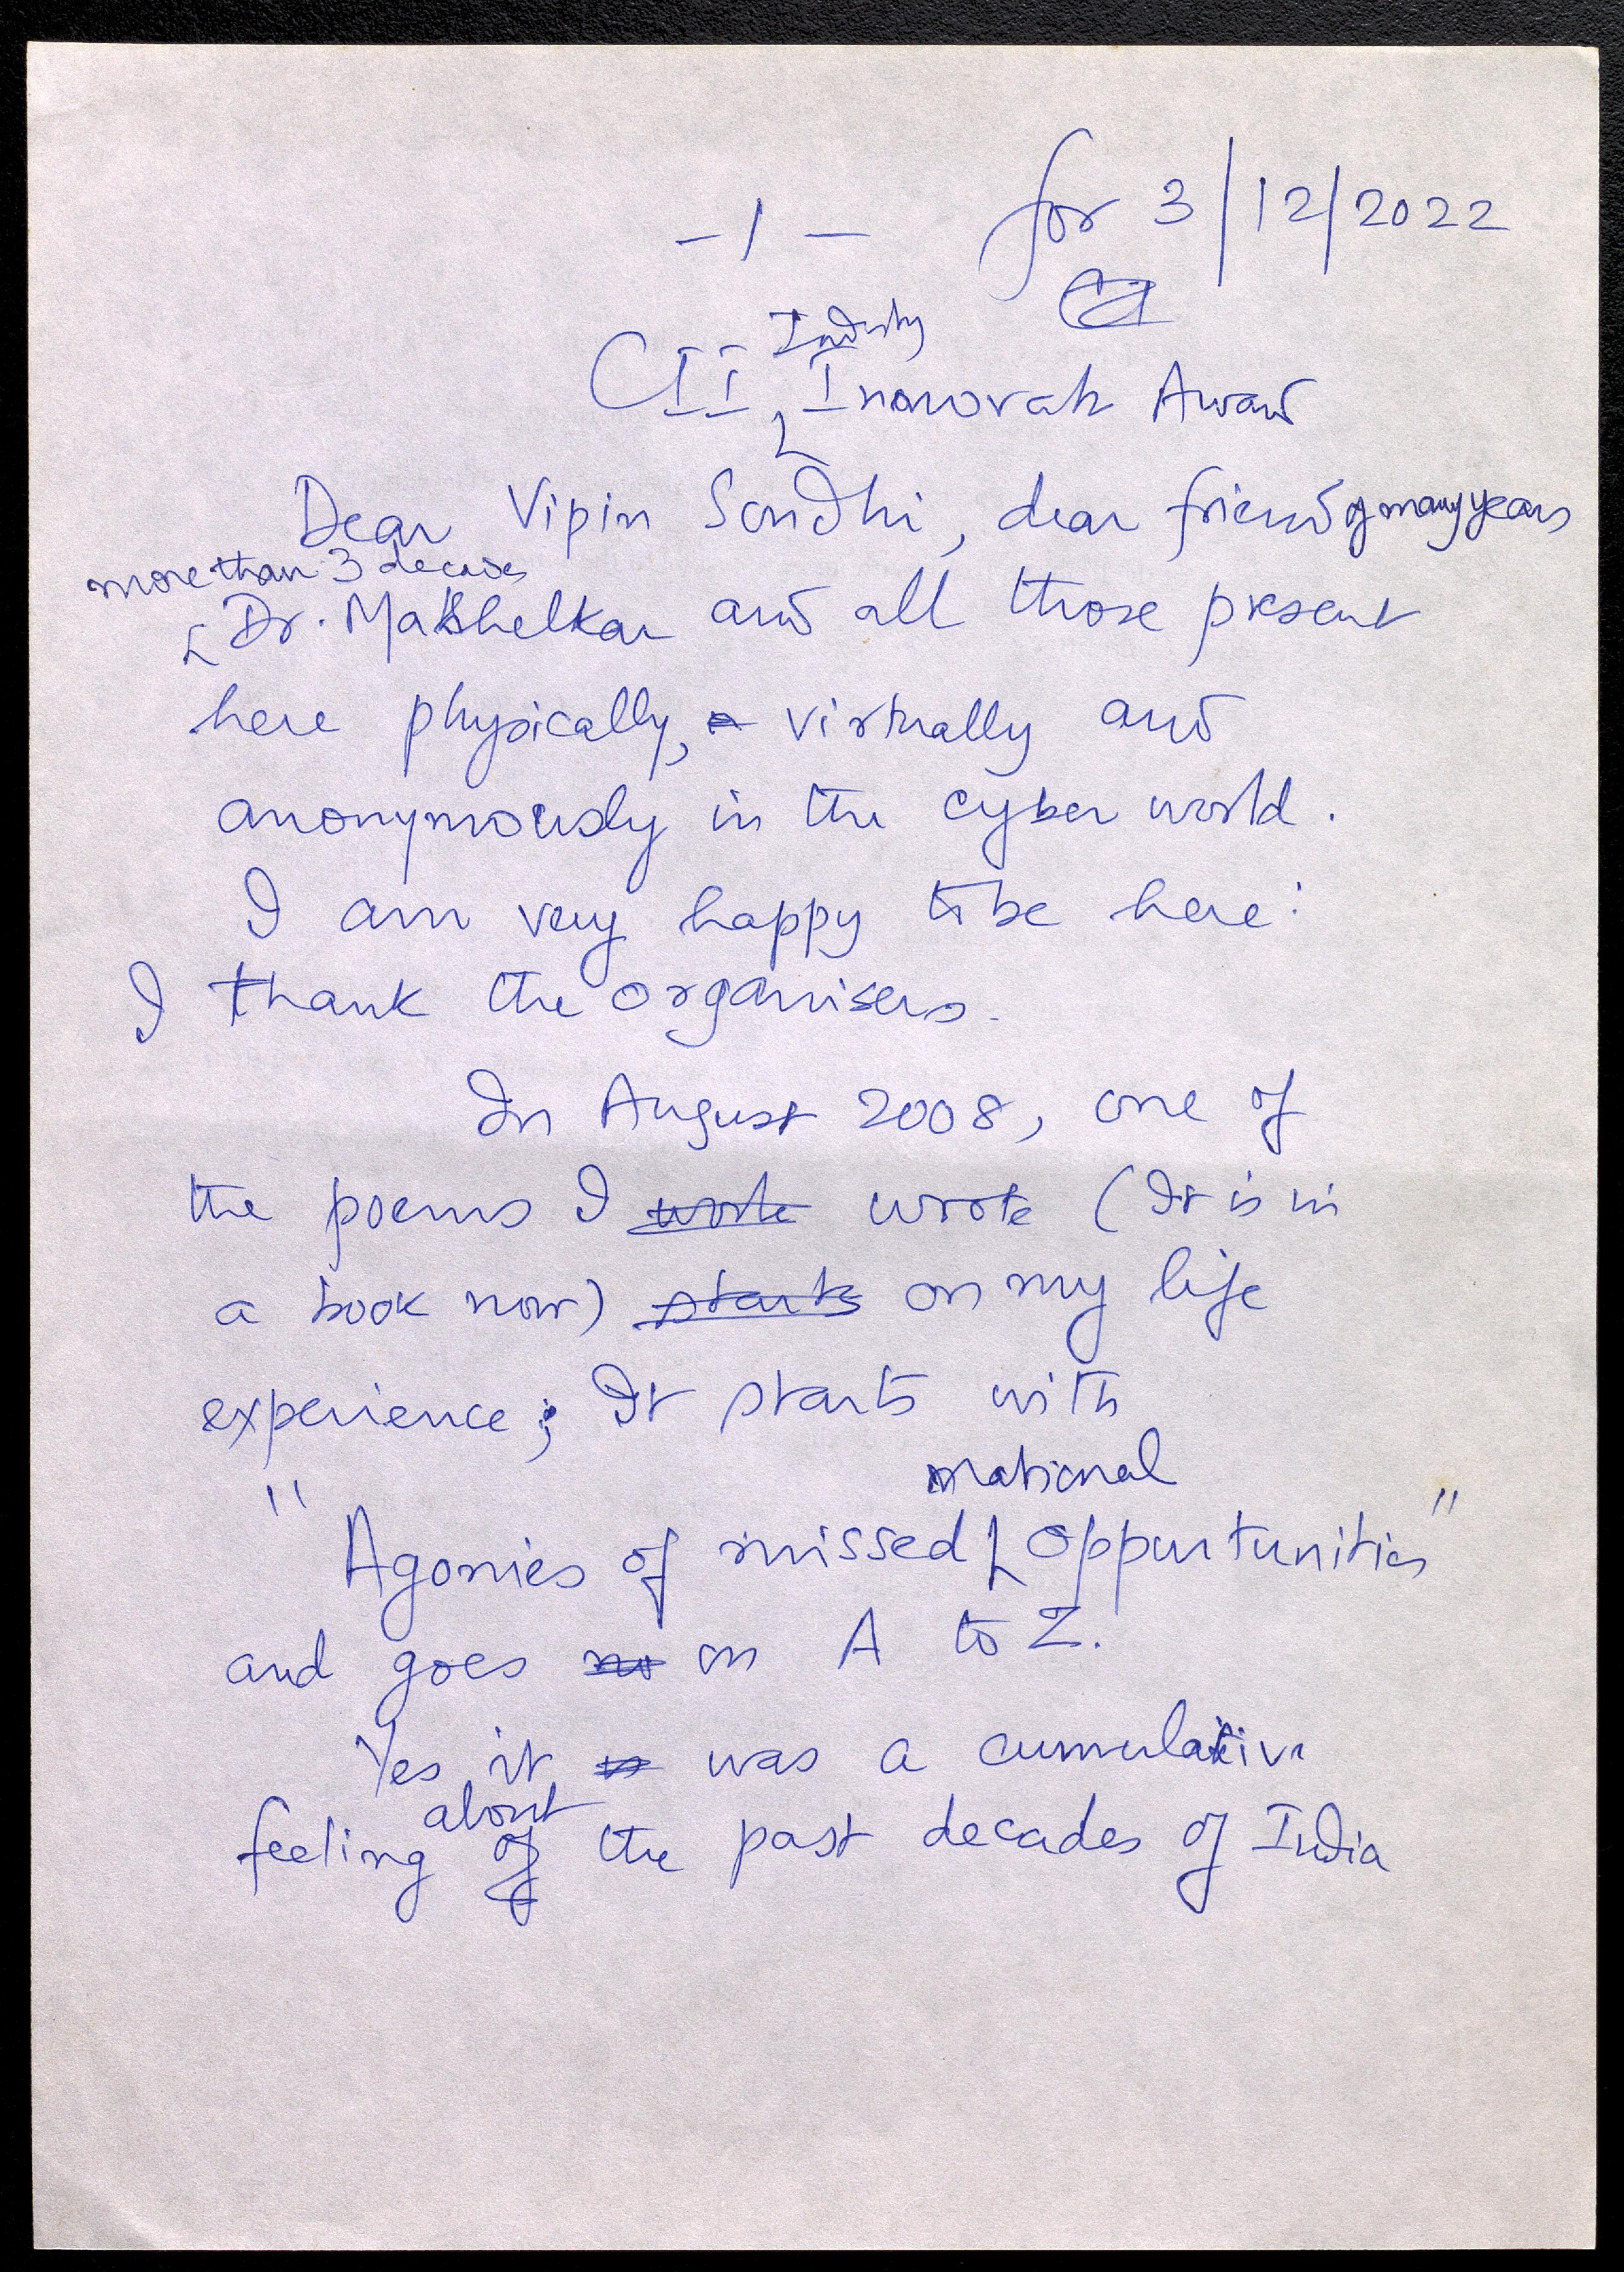 - 1 - for 3/12/2022
CII
Industry
CII Innovati Award
Dear Vipin Sondhi, dear friend of many years
more than 3 decades
Dr. Mashelkar and all those present
here physically, virtually and
anonymously in the cyber world.
I am very happy to be here:
I thank the organisers.
In August 2008, one of
the poems I wrote wrote (It is in
a book now) starts on my life
experience; It starts with
national
" Agonies of missed opportunities "
and goes no on A to Z.
Yes it is was a cumulative
about
feeling of the past decades of India